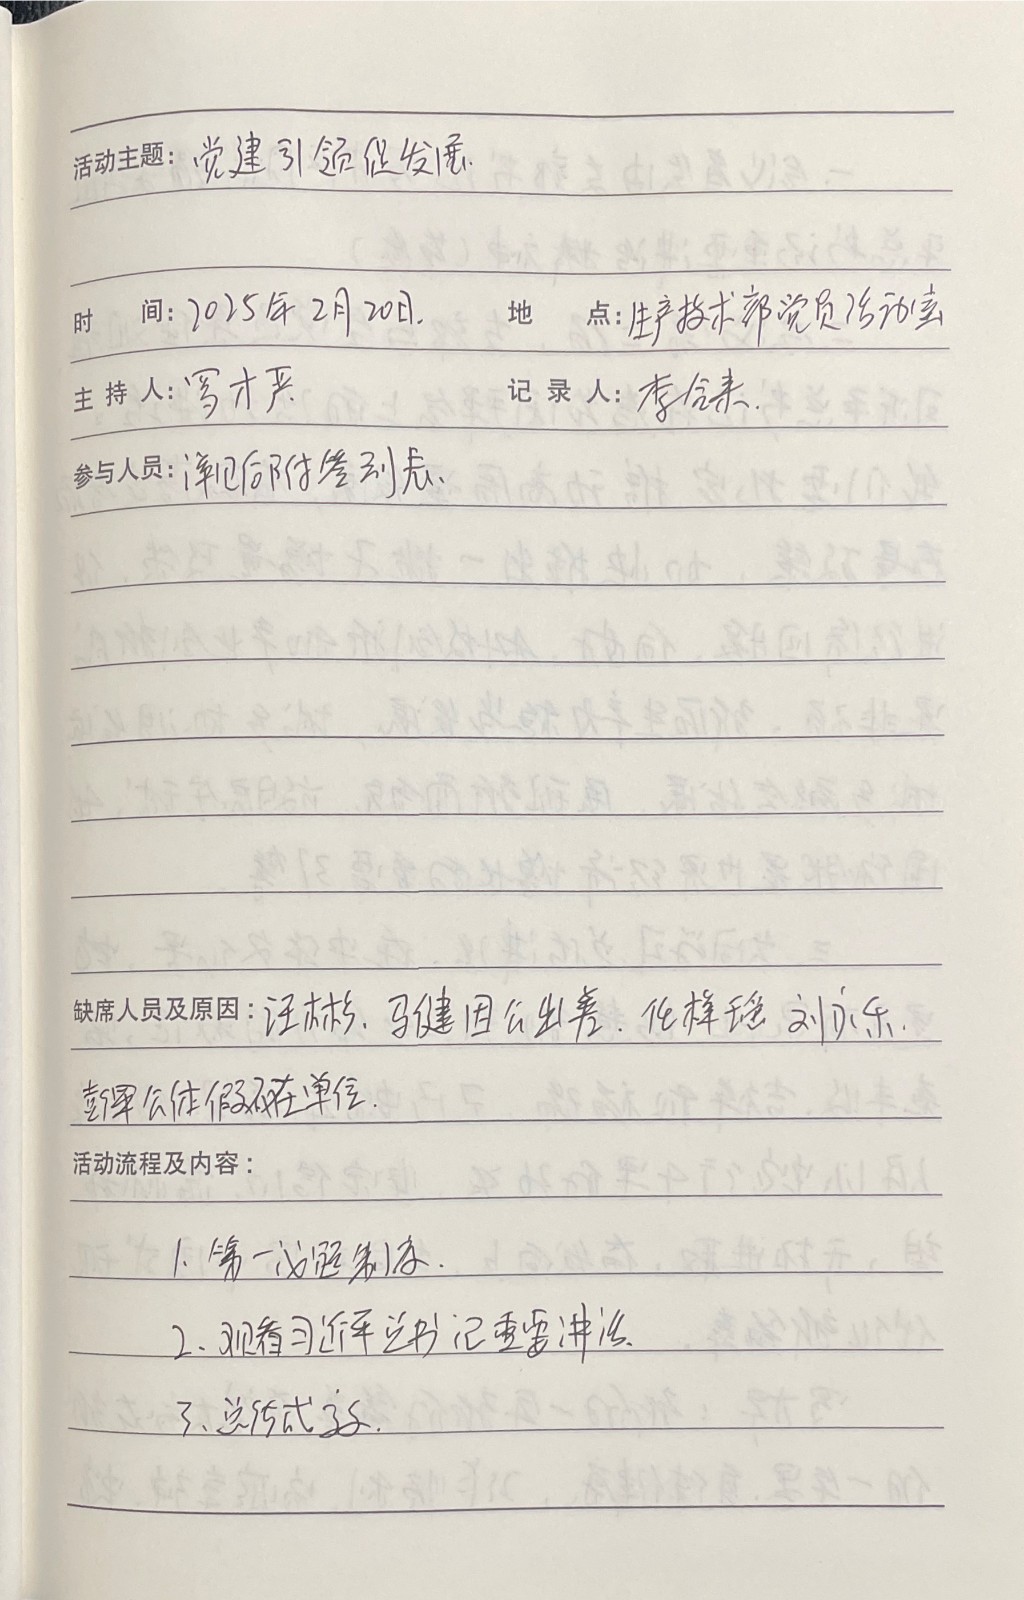 活动主题：党建引领促发展.
时 间：2025年2月20日. 地 点：生产技术部党员活动室
主 持 人：写才严 记 录 人：李合来.
参与人员：详见后附签到表.
缺席人员及原因：汪林彬、马健因公出差. 任梓瑶 刘永乐.
彭军公休假不在单位.
活动流程及内容：
1. 第一议题制度.
2、观看习近平总书记重要讲话.
3、总结式部.